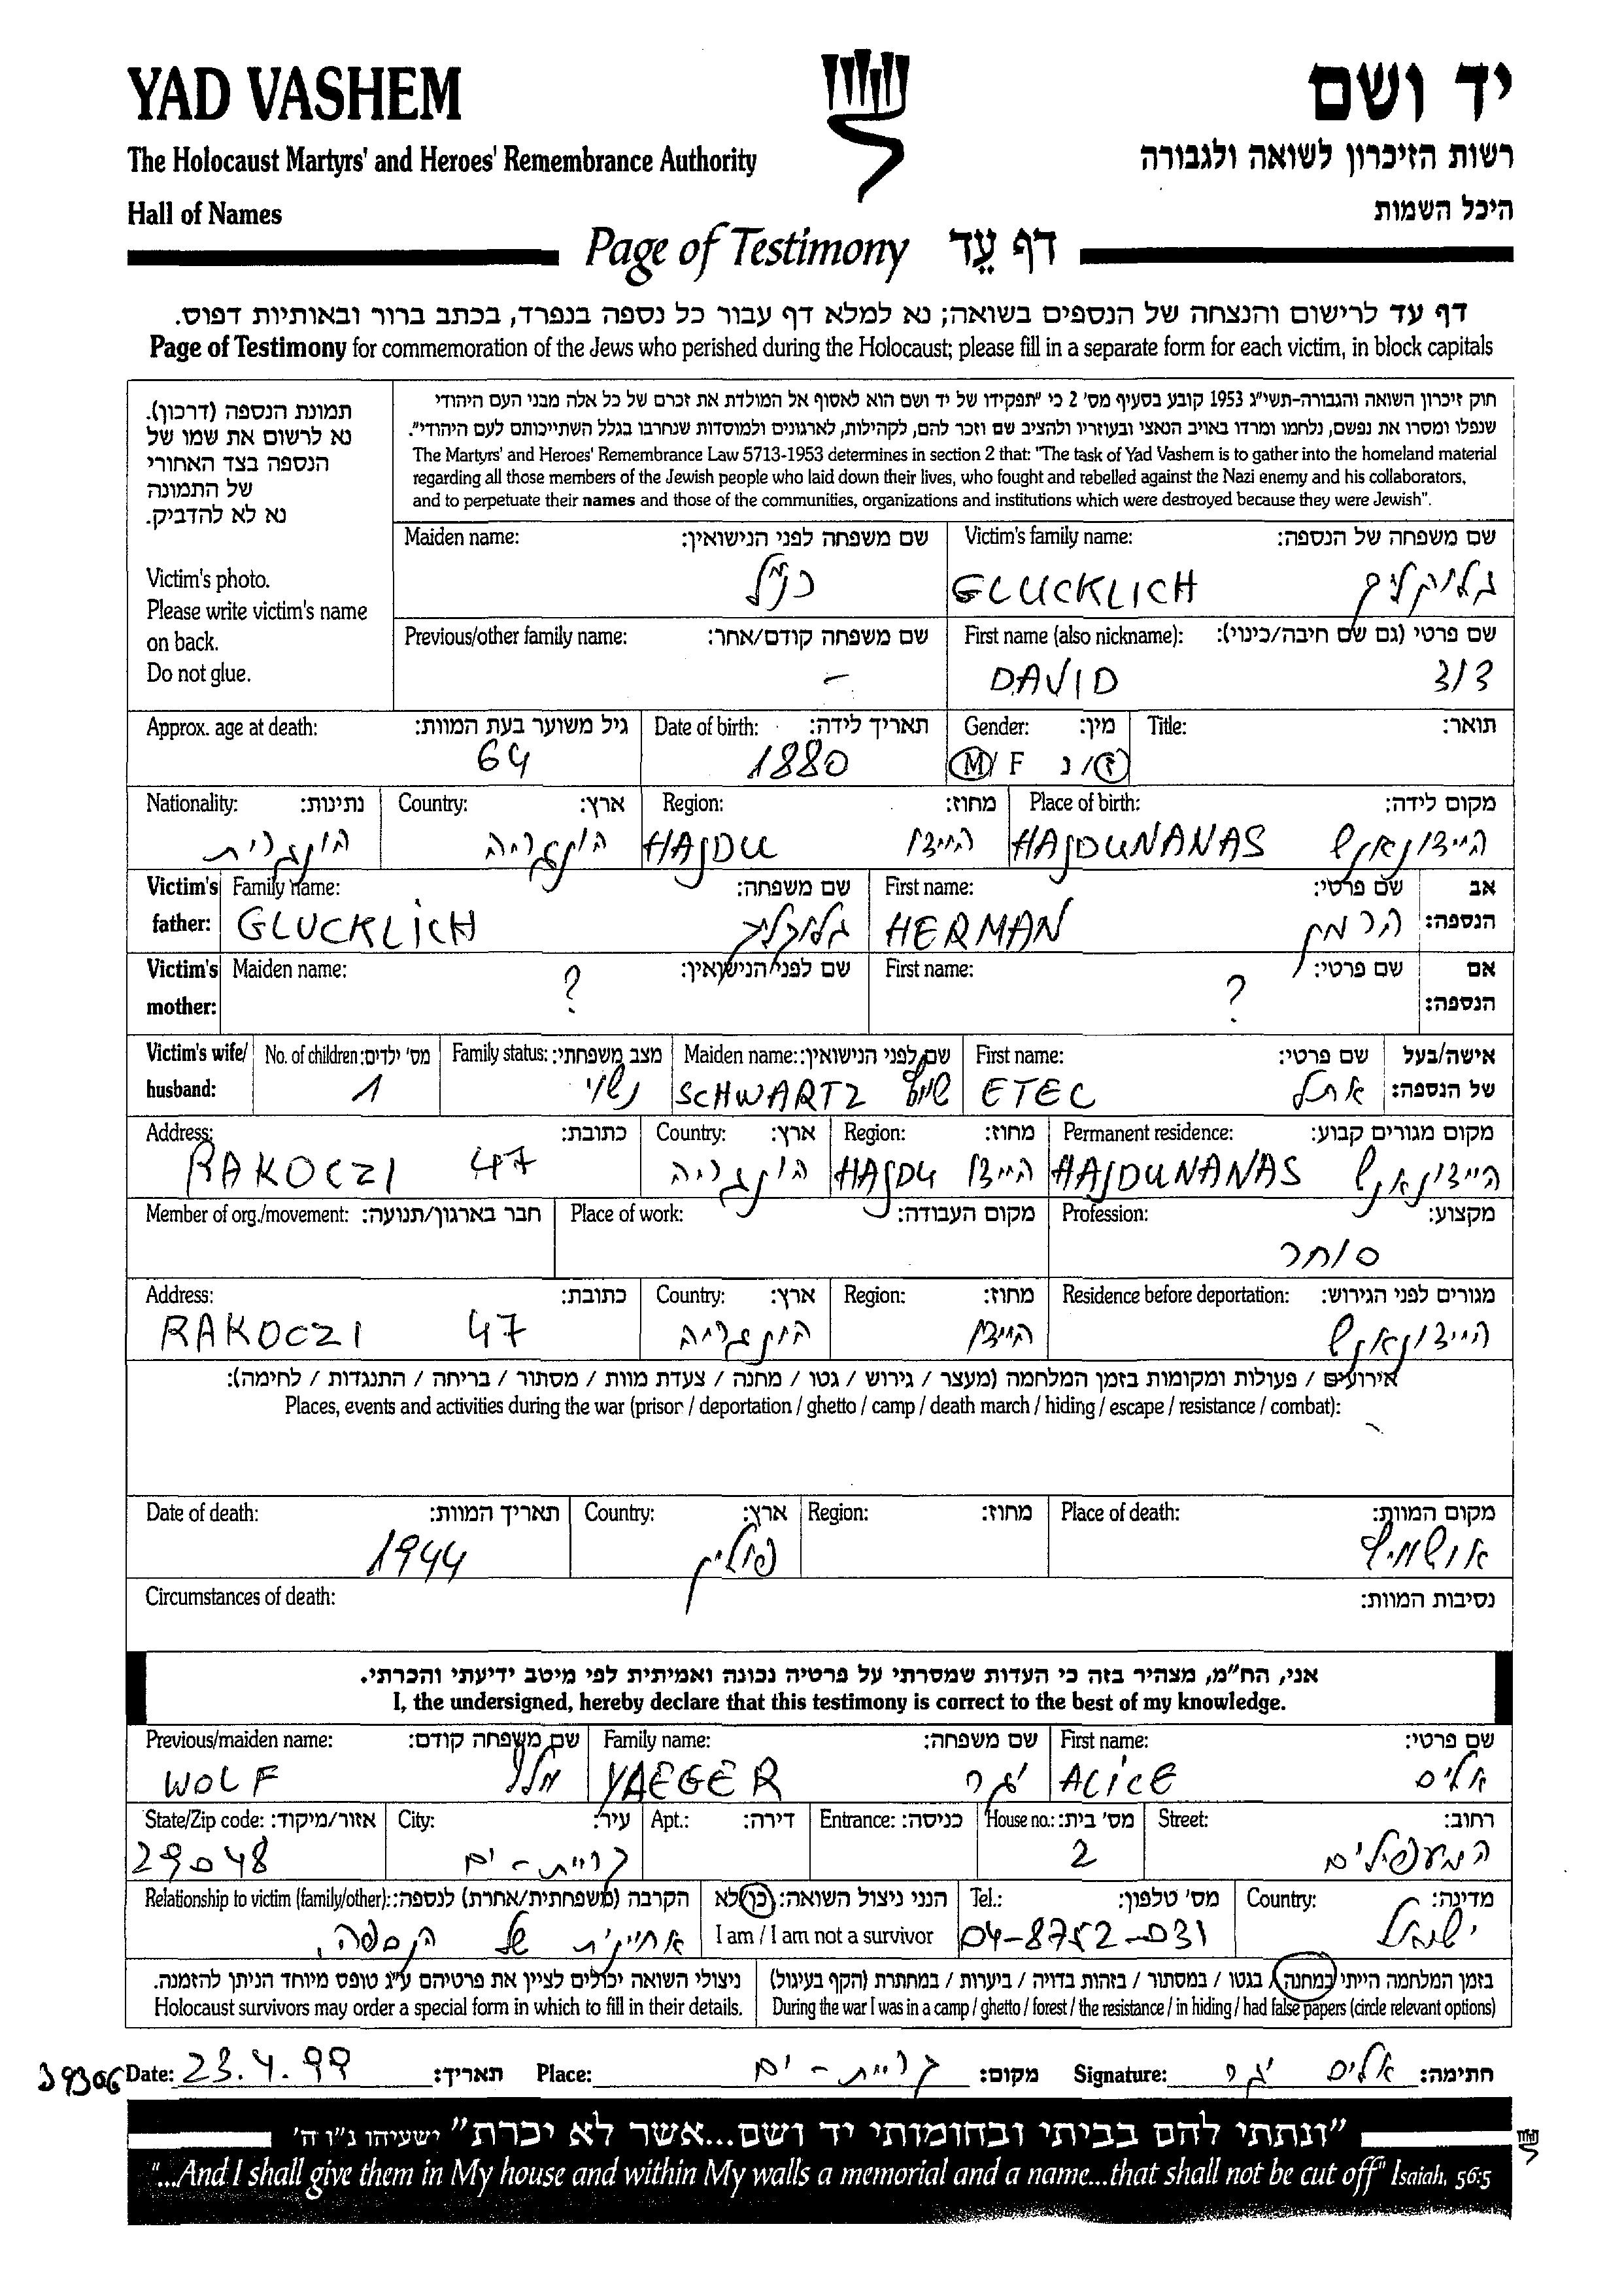 YAD VASHEM
יד ושם
The Holocaust Martyrs' and Heroes' Remembrance Authority
רשות הזיכרון לשואה ולגבורה
Hall of Names
היכל השמות
Page of Testimony דף עֵד
דף עד לרישום והנצחה של הנספים בשואה; נא למלא דף עבור כל נספה בנפרד, בכתב ברור ובאותיות דפוס.
Page of Testimony for commemoration of the Jews who perished during the Holocaust; please fill in a separate form for each victim, in block capitals
תמונת הנספה (דרכון).
נא לרשום את שמו של
הנספה בצד האחורי
של התמונה
נא לא להדביק.
Victim's photo.
Please write victim's name
on back.
Do not glue.
חוק זיכרון השואה והגבורה-תשי"ג 1953 קובע בסעיף מס' 2 כי "תפקידו של יד ושם הוא לאסוף אל המולדת את זכרם של כל אלה מבני העם היהודי
שנפלו ומסרו את נפשם, נלחמו ומרדו באויב הנאצי ובעוזריו ולהציב שם וזכר להם, לקהילות, לארגונים ולמוסדות שנחרבו בגלל השתייכותם לעם היהודי".
The Martyrs' and Heroes' Remembrance Law 5713-1953 determines in section 2 that: "The task of Yad Vashem is to gather into the homeland material
regarding all those members of the Jewish people who laid down their lives, who fought and rebelled against the Nazi enemy and his collaborators,
and to perpetuate their names and those of the communities, organizations and institutions which were destroyed because they were Jewish".
Victim's family name: שם משפחה של הנספה:
GLUCKLICH גלוקליך
Maiden name: שם משפחה לפני הנישואין:
כנ"ל
First name (also nickname): שם פרטי (גם שם חיבה/כינוי):
DAVID דוד
Previous/other family name: שם משפחה קודם/אחר:
-
Title: תואר:
Gender: מין:
M/ F ז/ נ
Date of birth: תאריך לידה:
1880
Approx. age at death: גיל משוער בעת המוות:
64
Place of birth: מקום לידה:
HAJDUNANAS היידונאנש
Region: מחוז:
HAJDU היידו
Country: ארץ:
הונגריה
Nationality: נתינות:
הונגרית
Victim's father: אב הנספה:
First name: שם פרטי:
HERMAN הרמן
Family name: שם משפחה:
GLUCKLICH גלוקליך
Victim's mother: אם הנספה:
First name: שם פרטי:
?
Maiden name: שם לפני הנישואין:
?
Victim's wife/ husband: אישה/בעל של הנספה:
First name: שם פרטי:
ETEC אתל
Maiden name: שם לפני הנישואין:
SCHWARTZ
Family status: מצב משפחתי:
נשוי
No. of children: מס' ילדים:
1
Permanent residence: מקום מגורים קבוע:
HAJDUNANAS היידונאנש
Region: מחוז:
HAJDU היידו
Country: ארץ:
הונגריה
Address: כתובת:
RAKOCZI 47
Profession: מקצוע:
סוחר
Place of work: מקום העבודה:
Member of org./movement: חבר בארגון/תנועה:
Residence before deportation: מגורים לפני הגירוש:
היידונאנש
Region: מחוז:
היידו
Country: ארץ:
הונגריה
Address: כתובת:
RAKOCZI 47
אירועים / פעולות ומקומות בזמן המלחמה (מעצר / גירוש / גטו / מחנה / צעדת מוות / מסתור / בריחה / התנגדות / לחימה):
Places, events and activities during the war (prison / deportation / ghetto / camp / death march / hiding / escape / resistance / combat):
Place of death: מקום המוות:
אושוויץ
Region: מחוז:
Country: ארץ:
פולין
Date of death: תאריך המוות:
1944
Circumstances of death: נסיבות המוות:
אני, הח"מ, מצהיר בזה כי העדות שמסרתי על פרטיה נכונה ואמיתית לפי מיטב ידיעתי והכרתי.
I, the undersigned, hereby declare that this testimony is correct to the best of my knowledge.
First name: שם פרטי:
ALICE אליס
Family name: שם משפחה:
YAEGER יגר
Previous/maiden name: שם משפחה קודם:
WOLF
Street: רחוב:
המעפילים
House no.: מס' בית:
2
Entrance: כניסה:
Apt.: דירה:
City: עיר:
קריית-ים
State/Zip code: אזור/מיקוד:
29048
Country: מדינה:
ישראל
Tel.: מס' טלפון:
04-8752-031
הנני ניצול השואה: כן/לא
I am / I am not a survivor
Relationship to victim (family/other): הקרבה (משפחתית/אחרת) לנספה:
אחיינית של הנספה.
בזמן המלחמה הייתי במחנה / בגטו / במסתור / בזהות בדויה / ביערות / במחתרת (הקף בעיגול)
During the war I was in a camp / ghetto / forest / the resistance / in hiding / had false papers (circle relevant options)
ניצולי השואה יכולים לציין את פרטיהם ע"ג טופס מיוחד הניתן להזמנה.
Holocaust survivors may order a special form in which to fill in their details.
39306 Date: 23.4.99 תאריך: Place: קריית-ים מקום: Signature: אליס יגר חתימה:
"ונתתי להם בביתי ובחומותי יד ושם...אשר לא יכרת" ישעיהו נ"ו ה'
"...And I shall give them in My house and within My walls a memorial and a name...that shall not be cut off" Isaiah, 56:5